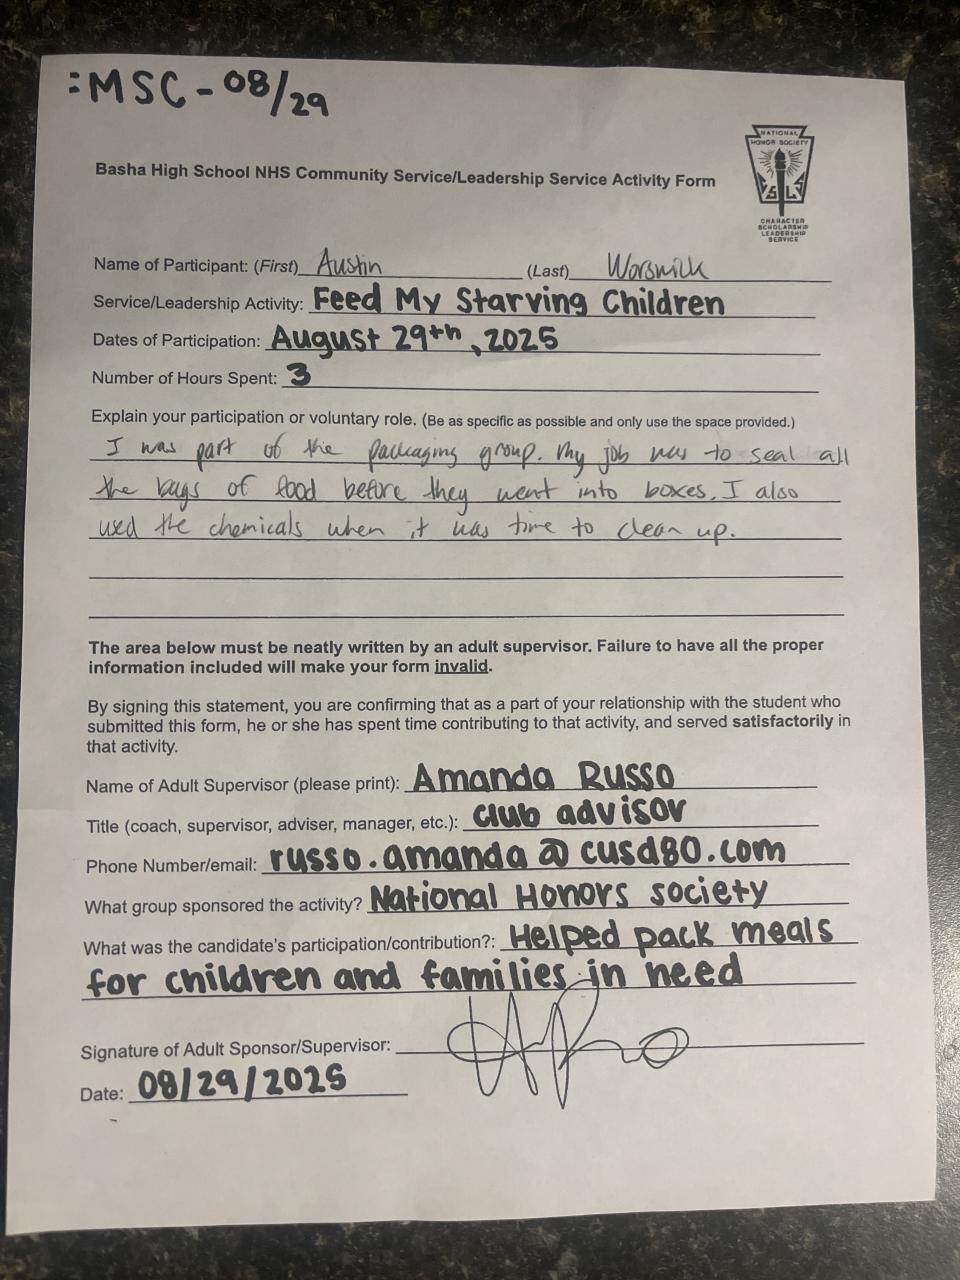 :MSC-08/29
NATIONAL
HONOR SOCIETY
CHARACTER
SCHOLARSHIP
LEADERSHIP
SERVICE
Basha High School NHS Community Service/Leadership Service Activity Form
Name of Participant: (First) Austin (Last) Worswick
Service/Leadership Activity: Feed My Starving Children
Dates of Participation: August 29th, 2025
Number of Hours Spent: 3
Explain your participation or voluntary role. (Be as specific as possible and only use the space provided.)
I was part of the packaging group. My job was to seal all
the bags of food before they went into boxes. I also
used the chemicals when it was time to clean up.
The area below must be neatly written by an adult supervisor. Failure to have all the proper
information included will make your form invalid.
By signing this statement, you are confirming that as a part of your relationship with the student who
submitted this form, he or she has spent time contributing to that activity, and served satisfactorily in
that activity.
Name of Adult Supervisor (please print): Amanda Russo
Title (coach, supervisor, adviser, manager, etc.): club advisor
Phone Number/email: russo.amanda@cusd80.com
What group sponsored the activity? National Honors society
What was the candidate's participation/contribution?: Helped pack meals
for children and families in need
Signature of Adult Sponsor/Supervisor:
Date: 08/29/2025